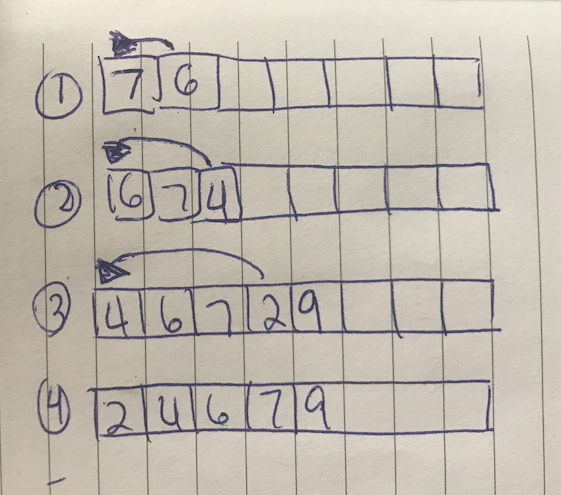 ① 7 6
② 6 7 4
③ 4 6 7 2 9
④ 2 4 6 7 9